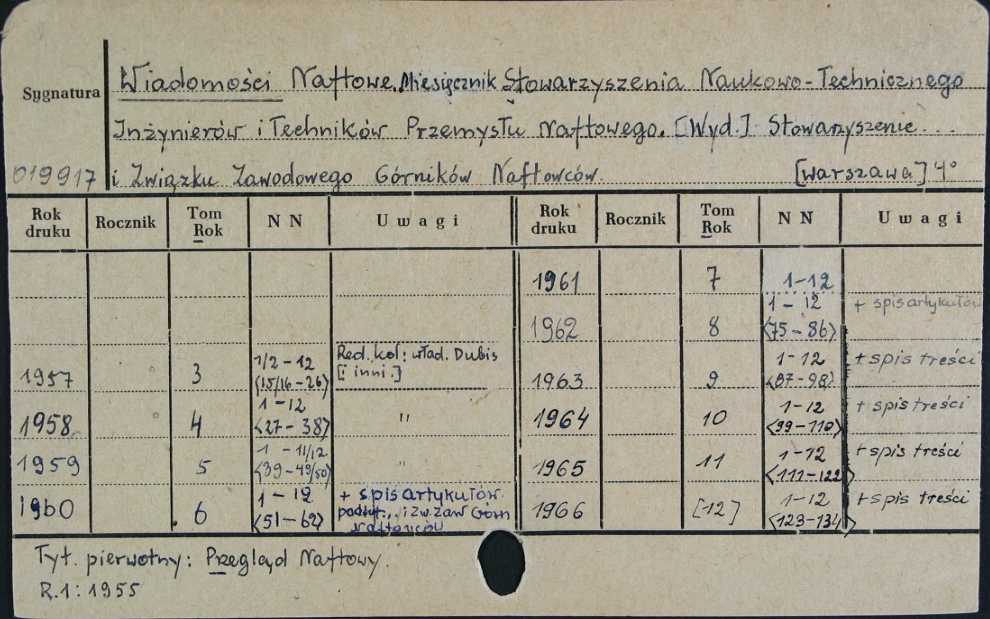 Sygnatura
Wiadomości Naftowe. Miesięcznik Stowarzyszenia Naukowo-Technicznego
Inżynierów i Techników Przemysłu Naftowego. [Wyd.] Stowarzyszenie...
019917 i Związku Zawodowego Górników Naftowców. [Warszawa] 4°
Rok druku Rocznik Tom Rok NN Uwagi Rok druku Rocznik Tom Rok NN Uwagi
1961 7 1-12
1962 8 1-12 <75-86> + spis artykułów
1957 3 1/2-12 <15/16-26> Red. kol: Wład. Dubis [i inni.] 1963 9 1-12 <87-98> + spis treści
1958 4 1-12 <27-38> " 1964 10 1-12 <99-110> + spis treści
1959 5 1-11/12 <39-49/50> " 1965 11 1-12 <111-122> + spis treści
1960 6 1-12 <51-62> + spis artykułów. podtyt... i Zw. Zaw Górn Naftowców 1966 [12] 1-12 <123-134> + spis treści
Tyt. pierwotny: Przegląd Naftowy.
R.1: 1955